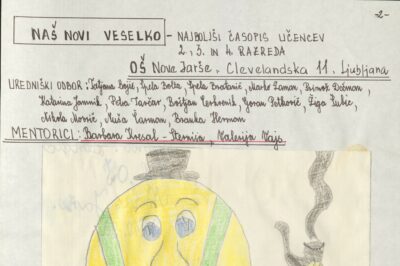 -2-
NAŠ NOVI VESELKO - NAJBOLJŠI ČASOPIS UČENCEV
2., 3. IN 4. RAZREDA
OŠ Nove Jarše, Clevelandska 11, Ljubljana
UREDNIŠKI ODBOR: Tatjana Bojić, Špela Bolta, Špela Bratanič, Marko Zaman, Primož Dečman,
Jamnik, Petra Tavčar, Boštjan, Goran Petković, Žiga Šubic,
Nikola Mönić, Nuša Čarman, Branka Herman
MENTORICI: Barbara Kresal - Sternisa, Valerija Vajs